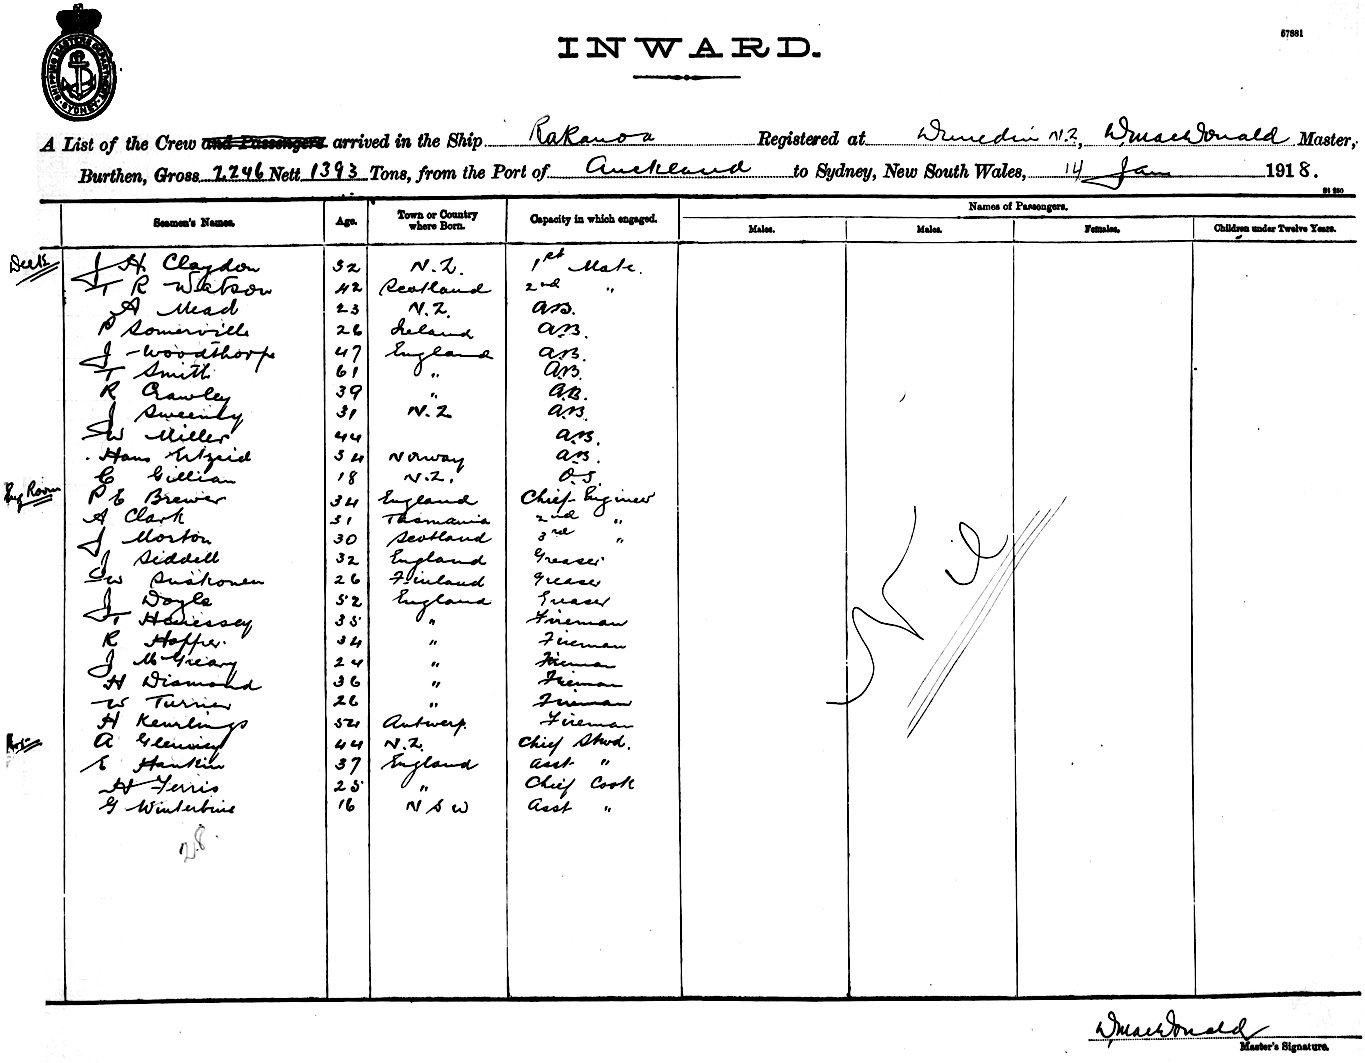 SHIPPING MASTERS DEPARTMENT SYDNEY
INWARD.
57881
A List of the Crew and Passengers arrived in the Ship Rakanoa Registered at Dunedin N.Z, D, MacDonald Master,
Burthen, Gross 2246 Nett 1393 Tons, from the Port of Auckland to Sydney, New South Wales, 14 Jan 1918.
Seamen's Names. Age. Town or Country where Born. Capacity in which engaged. Names of Passengers.
Males. Males. Females. Children under Twelve Years.
Deck J H Claydon 32 N.Z. 1st Mate.
T R Watson 42 Scotland 2nd "
A Mead 23 N.Z. AB.
P Somerville 26 Ireland AB.
J Woodthorpe 47 England AB.
T Smith 61 " AB.
R Crawley 39 " AB.
J Sweeney 31 N.Z AB.
W Miller 44 AB.
Hans 34 Norway AB.
C Gillian 18 N.Z. O.S.
Eng Room P E Brewer 34 England Chief Engineer
A Clark 31 Tasmania 2nd "
J Morton 30 Scotland 3rd "
J Siddell 32 England Greaser
26 Finland Greaser
J Doyle 52 England Greaser
T Hennessey 35 " Fireman
R Hopper 34 " Fireman
J McGreary 24 " Fireman
H Dismond 36 " Fireman
W Turner 26 " Fireman
H Keurlings 54 Antwerp Fireman
A 44 N.Z. Chief Stwd.
E Hankin 37 England Asst "
H Ferris 25 " Chief Cook
G Winterbine 16 N S W Asst "
Nil
28.
D, MacDonald
Master's Signature.